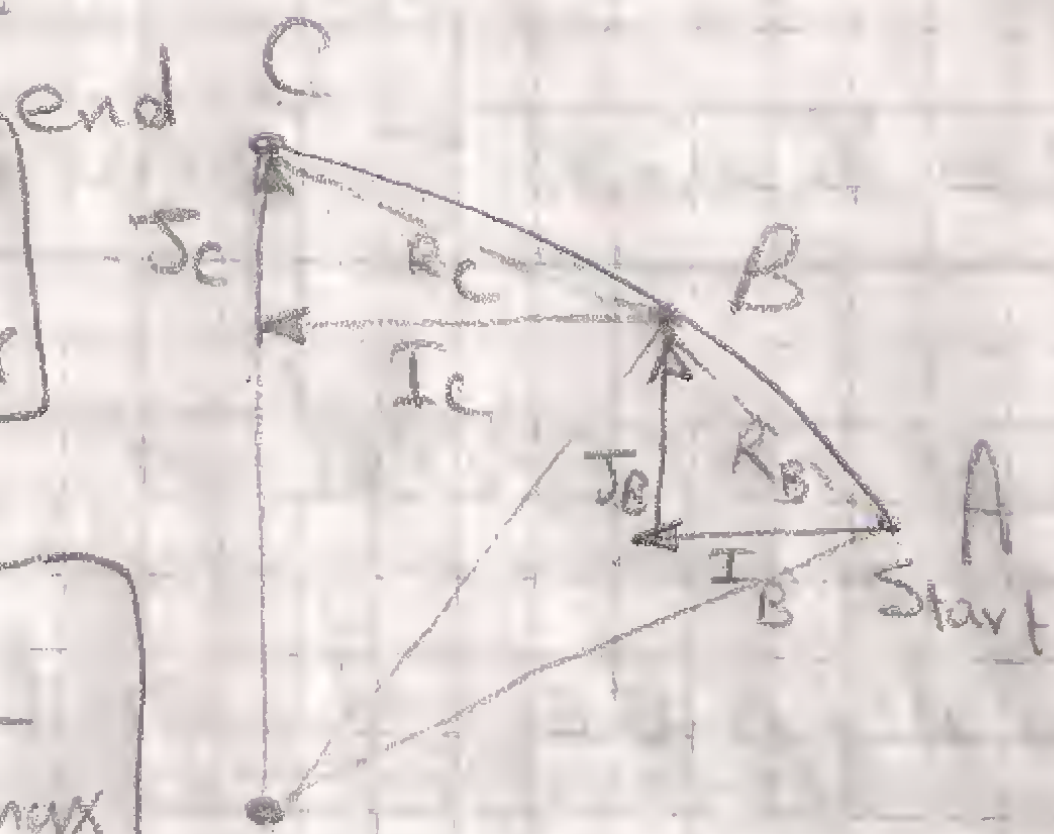 C
end
J_C
R_C
B
I_C
J_B
R_B
A
I_B
Start